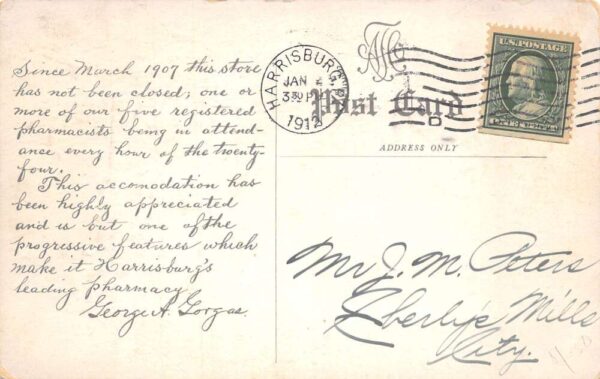 Since March 1907 this store
has not been closed; one or
more of our five registered
pharmacists being in attend-
ance every hour of the twenty-
four.
This accomodation has
been highly appreciated
and is but one of the
progressive features which
make it Harrisburg's
leading pharmacy
George A. Gorgas.
HARRISBURG, PA.
JAN 2
1912
D
Post Card
ADDRESS ONLY
U.S. POSTAGE
Mr J. M. Peters
Eberly's Mills
City.